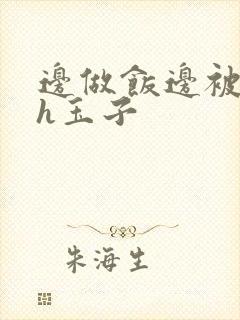 邊做飯邊被
h玉子
朱海生